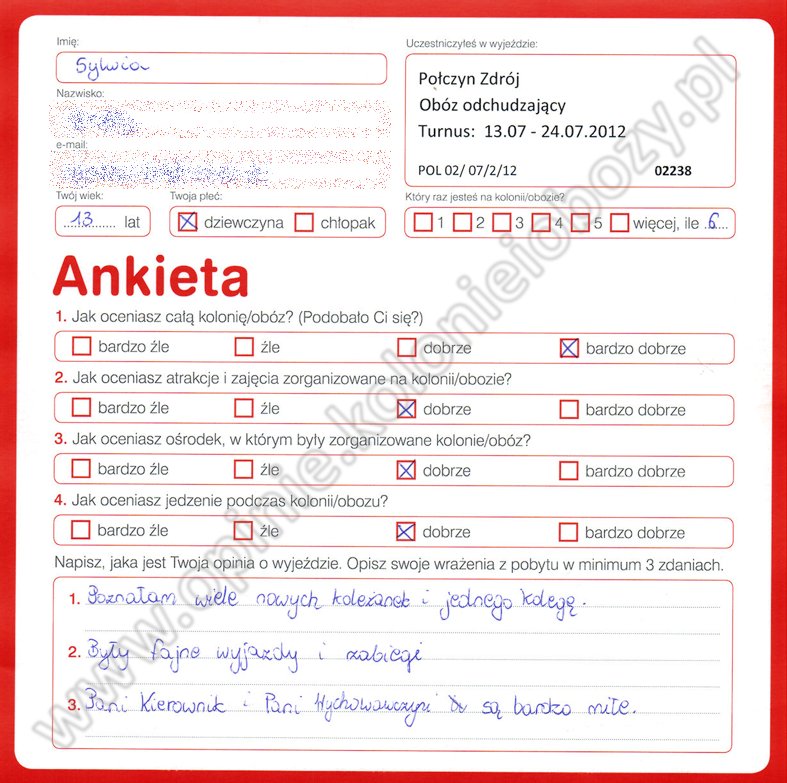 Imię:
Sylwia
Uczestniczyłeś w wyjeździe:
Połczyn Zdrój
Obóz odchudzający
Turnus: 13.07 - 24.07.2012
POL 02/ 07/2/12 02238
Nazwisko:
e-mail:
Twój wiek:
13 lat
Twoja płeć:
dziewczyna chłopak
Który raz jesteś na kolonii/obozie?
1 2 3 4 5 więcej, ile 6
Ankieta
1. Jak oceniasz całą kolonię/obóz? (Podobało Ci się?)
bardzo źle źle dobrze bardzo dobrze
2. Jak oceniasz atrakcje i zajęcia zorganizowane na kolonii/obozie?
bardzo źle źle dobrze bardzo dobrze
3. Jak oceniasz ośrodek, w którym były zorganizowane kolonie/obóz?
bardzo źle źle dobrze bardzo dobrze
4. Jak oceniasz jedzenie podczas kolonii/obozu?
bardzo źle źle dobrze bardzo dobrze
Napisz, jaka jest Twoja opinia o wyjeździe. Opisz swoje wrażenia z pobytu w minimum 3 zdaniach.
1. Poznałam wiele nowych koleżanek i jednego kolegę.
2. Były fajne wyjazdy i zabiegi
3. Pani Kierownik i Pani Wychowawczyni są bardzo miłe.
www.opinie.kolonieiobozy.pl